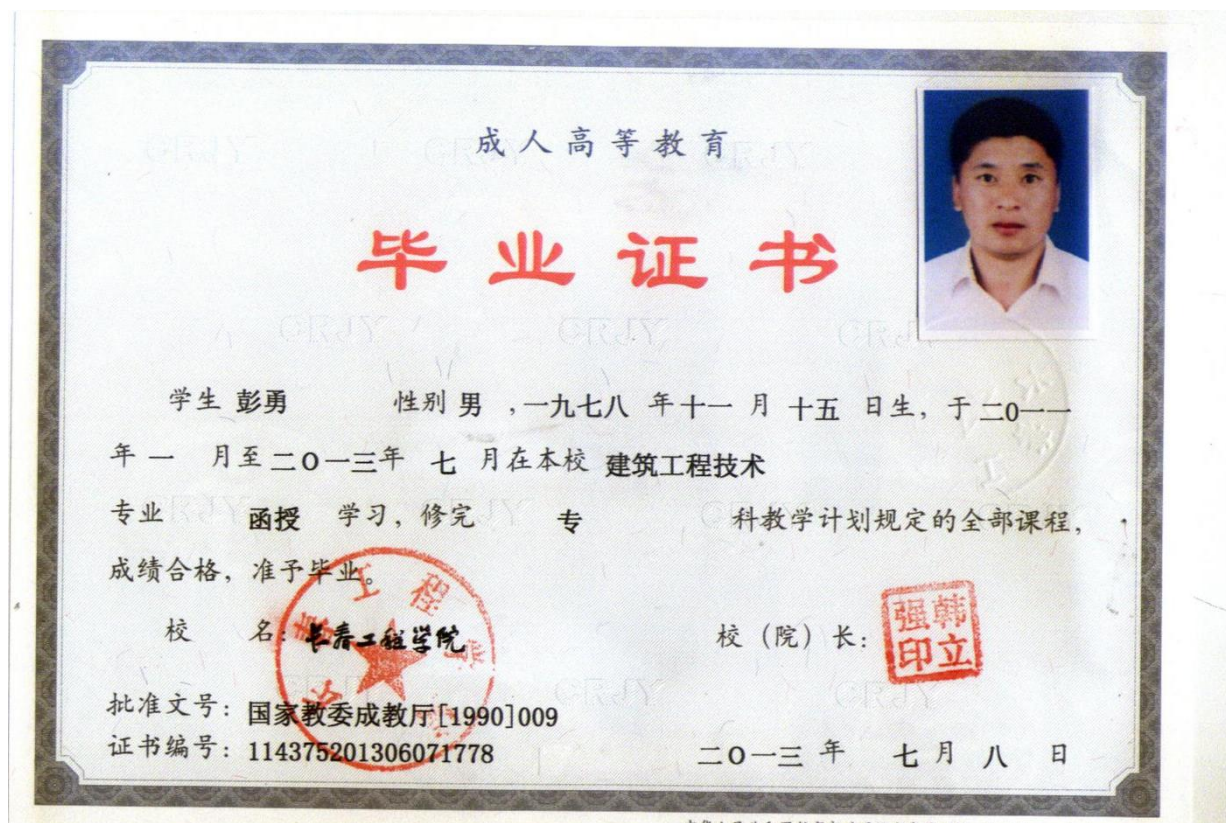 成人高等教育
毕业证书
学生 彭勇 性别 男 ,一九七八 年十一 月 十五 日生，于二0一一
年 一 月至二0一三年 七 月在本校 建筑工程技术
专业 函授 学习，修完 专 科教学计划规定的全部课程，
成绩合格，准予毕业。
校 名：长春工程学院
校（院）长：
韩立强印
批准文号：国家教委成教厅[1990]009
证书编号：114375201306071778
二0一三 年 七 月 八 日